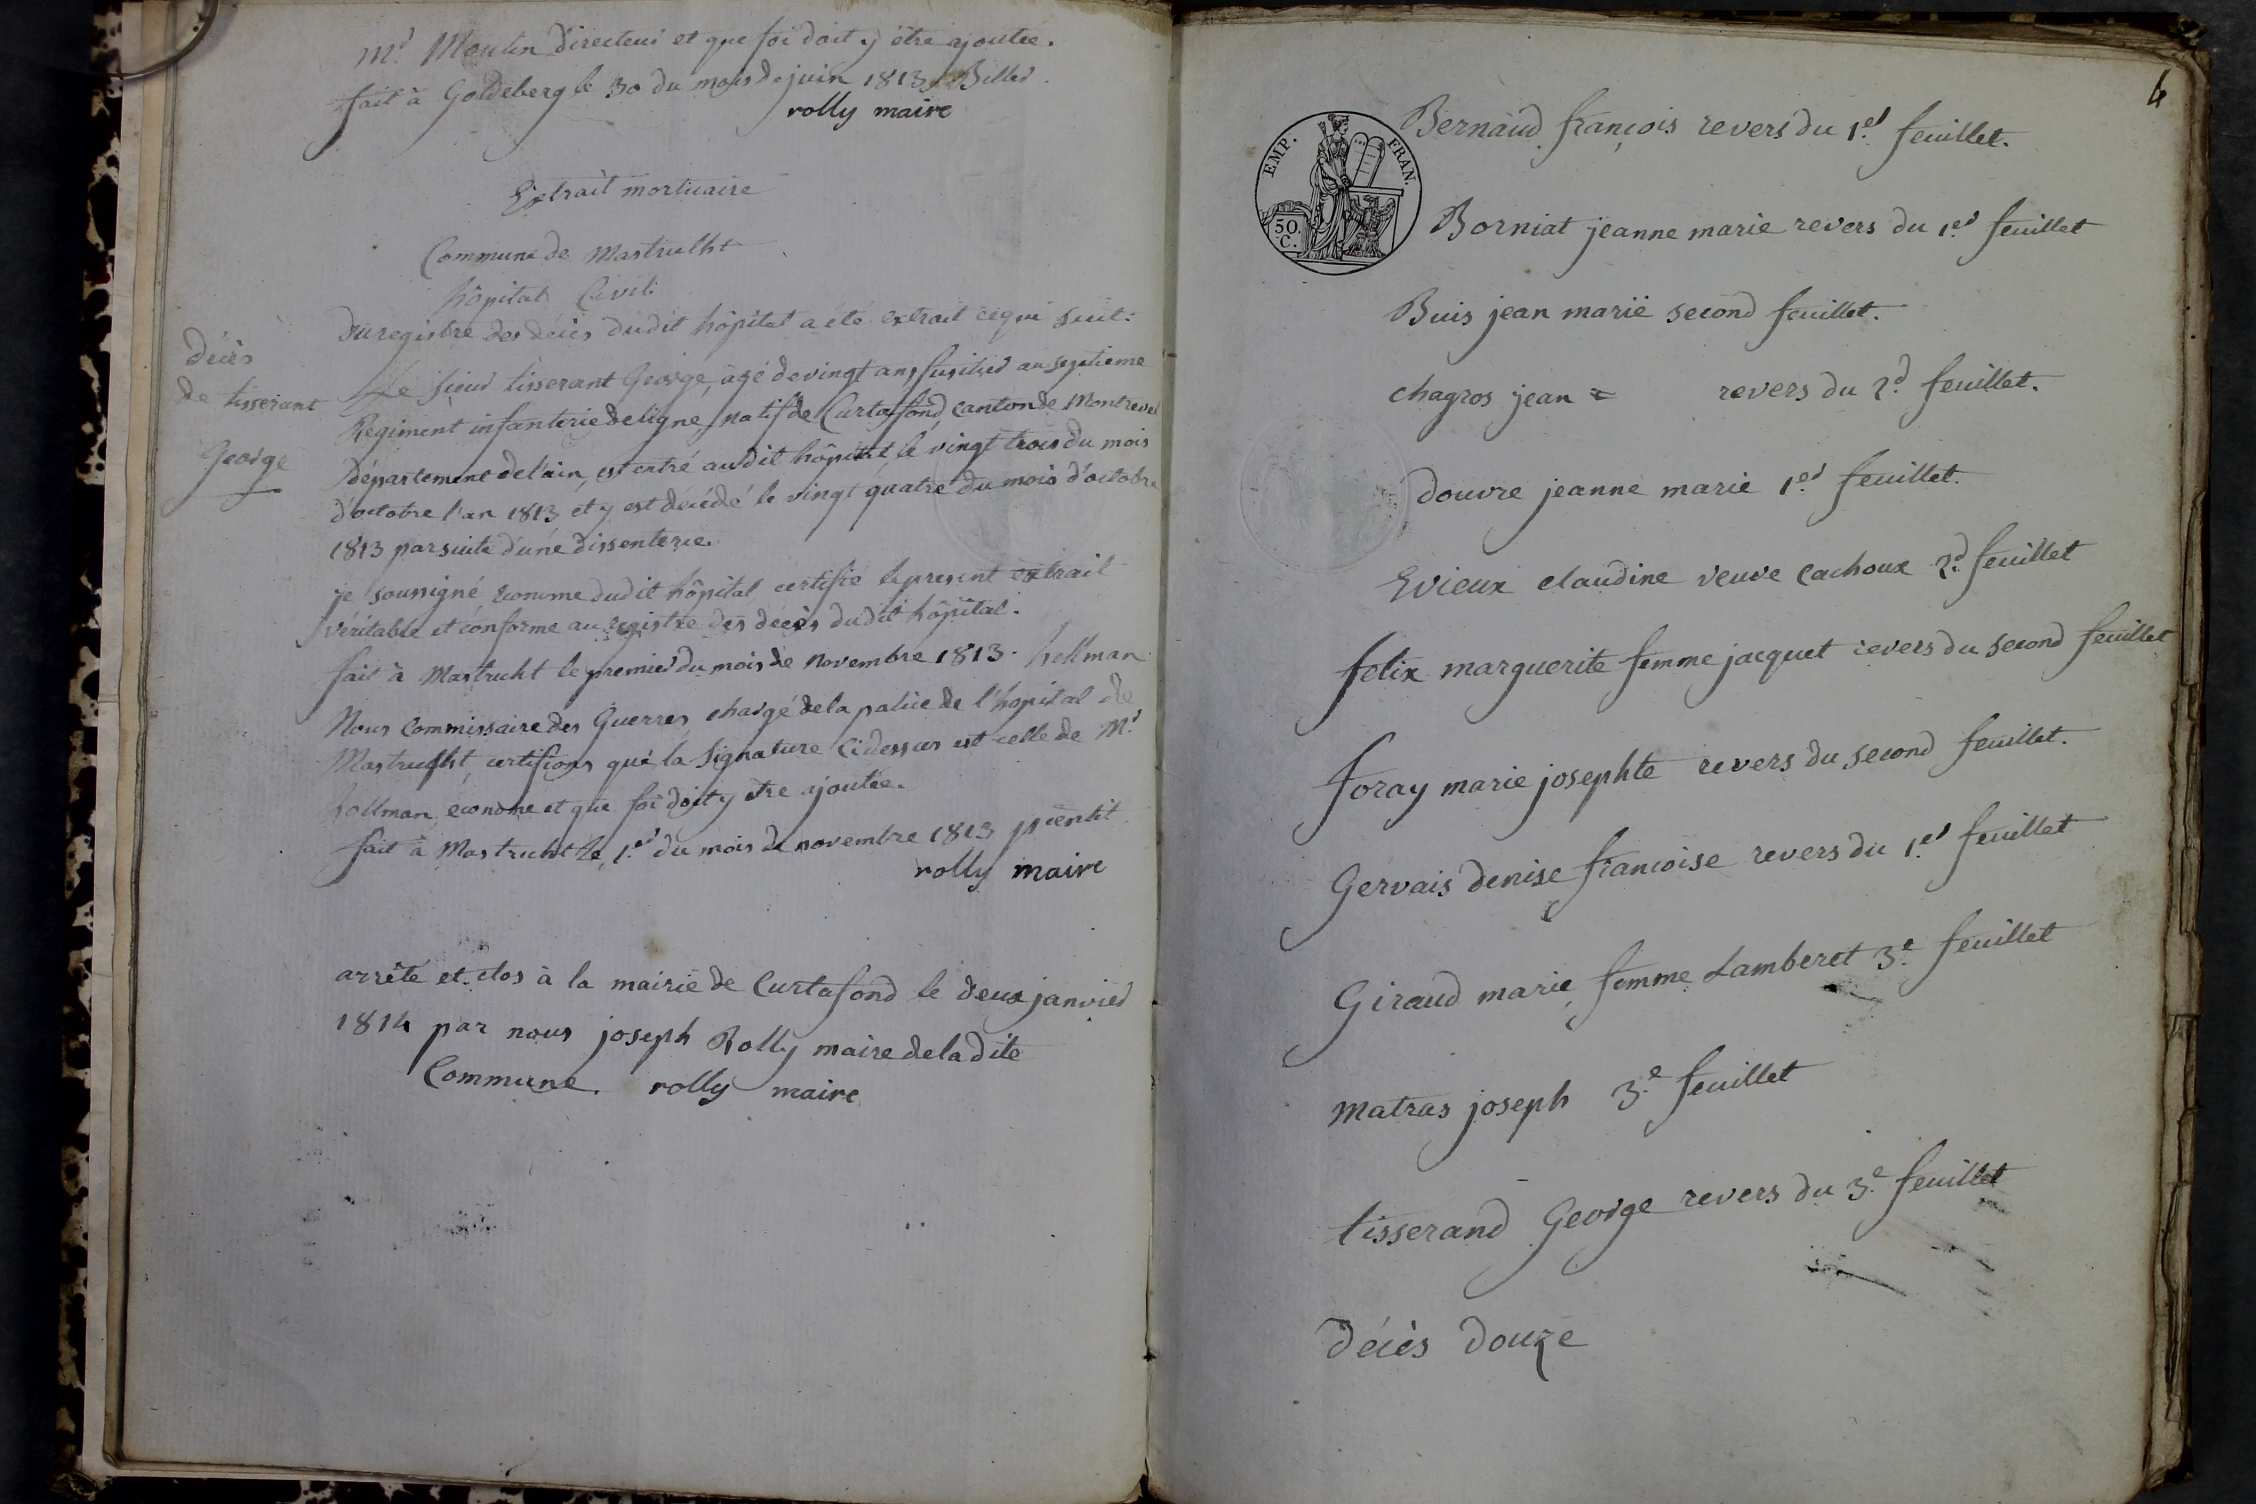 Mr. Moulin directeur et que foi doit y être ajoutée.
fait à Goldeberg le 30 du mois de juin 1813 Biller
rolly maire
Extrait mortuaire
Commune de Mastrucht
hôpital Civil:
du registre des décès dudit hôpital a été extrait ce qui suit:
décès
de tisserant
George
Le sieur tisserant George, agé de vingt ans fusilier au septieme
Regiment infanterie de ligne, natif de Curtafond, canton de Montrevel
département de l'ain, est entré audit hôpital le vingt trois du mois
d'octobre l'an 1813 et y est décédé le vingt quatre du mois d'octobre
1813 par suite d'une dissenterie.
je soussigné econome dudit hôpital certifie le present extrait
véritable et conforme au registre des décès dudit hôpital.
fait à Mastrucht le premier du mois de novembre 1813. hollman
Nous Commissaire des Guerres, chargé de la police de l'hopital de
Mastrucht, certifions que la Signature Cidessus est celle de Mr.
hollman, econome et que foi doit y etre ajoutée.
fait à Mastrucht le 1.er du mois de novembre 1813
rolly maire
arrêté et clos à la mairie de Curtafond le deux janvier
1814 par nous joseph Rolly maire de ladite
Commune. rolly maire
4
EMP. FRAN.
50.
C.
Bernaud françois revers du 1.er feuillet.
Borniat jeanne marie revers du 1.er feuillet
Buis jean marie second feuillet.
chagros jean = revers du 2.d feuillet.
douvre jeanne marie 1.er feuillet.
Evieux claudine veuve Cachoux 2.d feuillet
felix marguerite femme jacquet revers du second feuillet
foray marie josephte revers du second feuillet.
Gervais denise françoise revers du 1.er feuillet
Giraud marie femme Lamberet 3.e feuillet
matras joseph 3.e feuillet
tisserand George revers du 3.e feuillet
décès douze